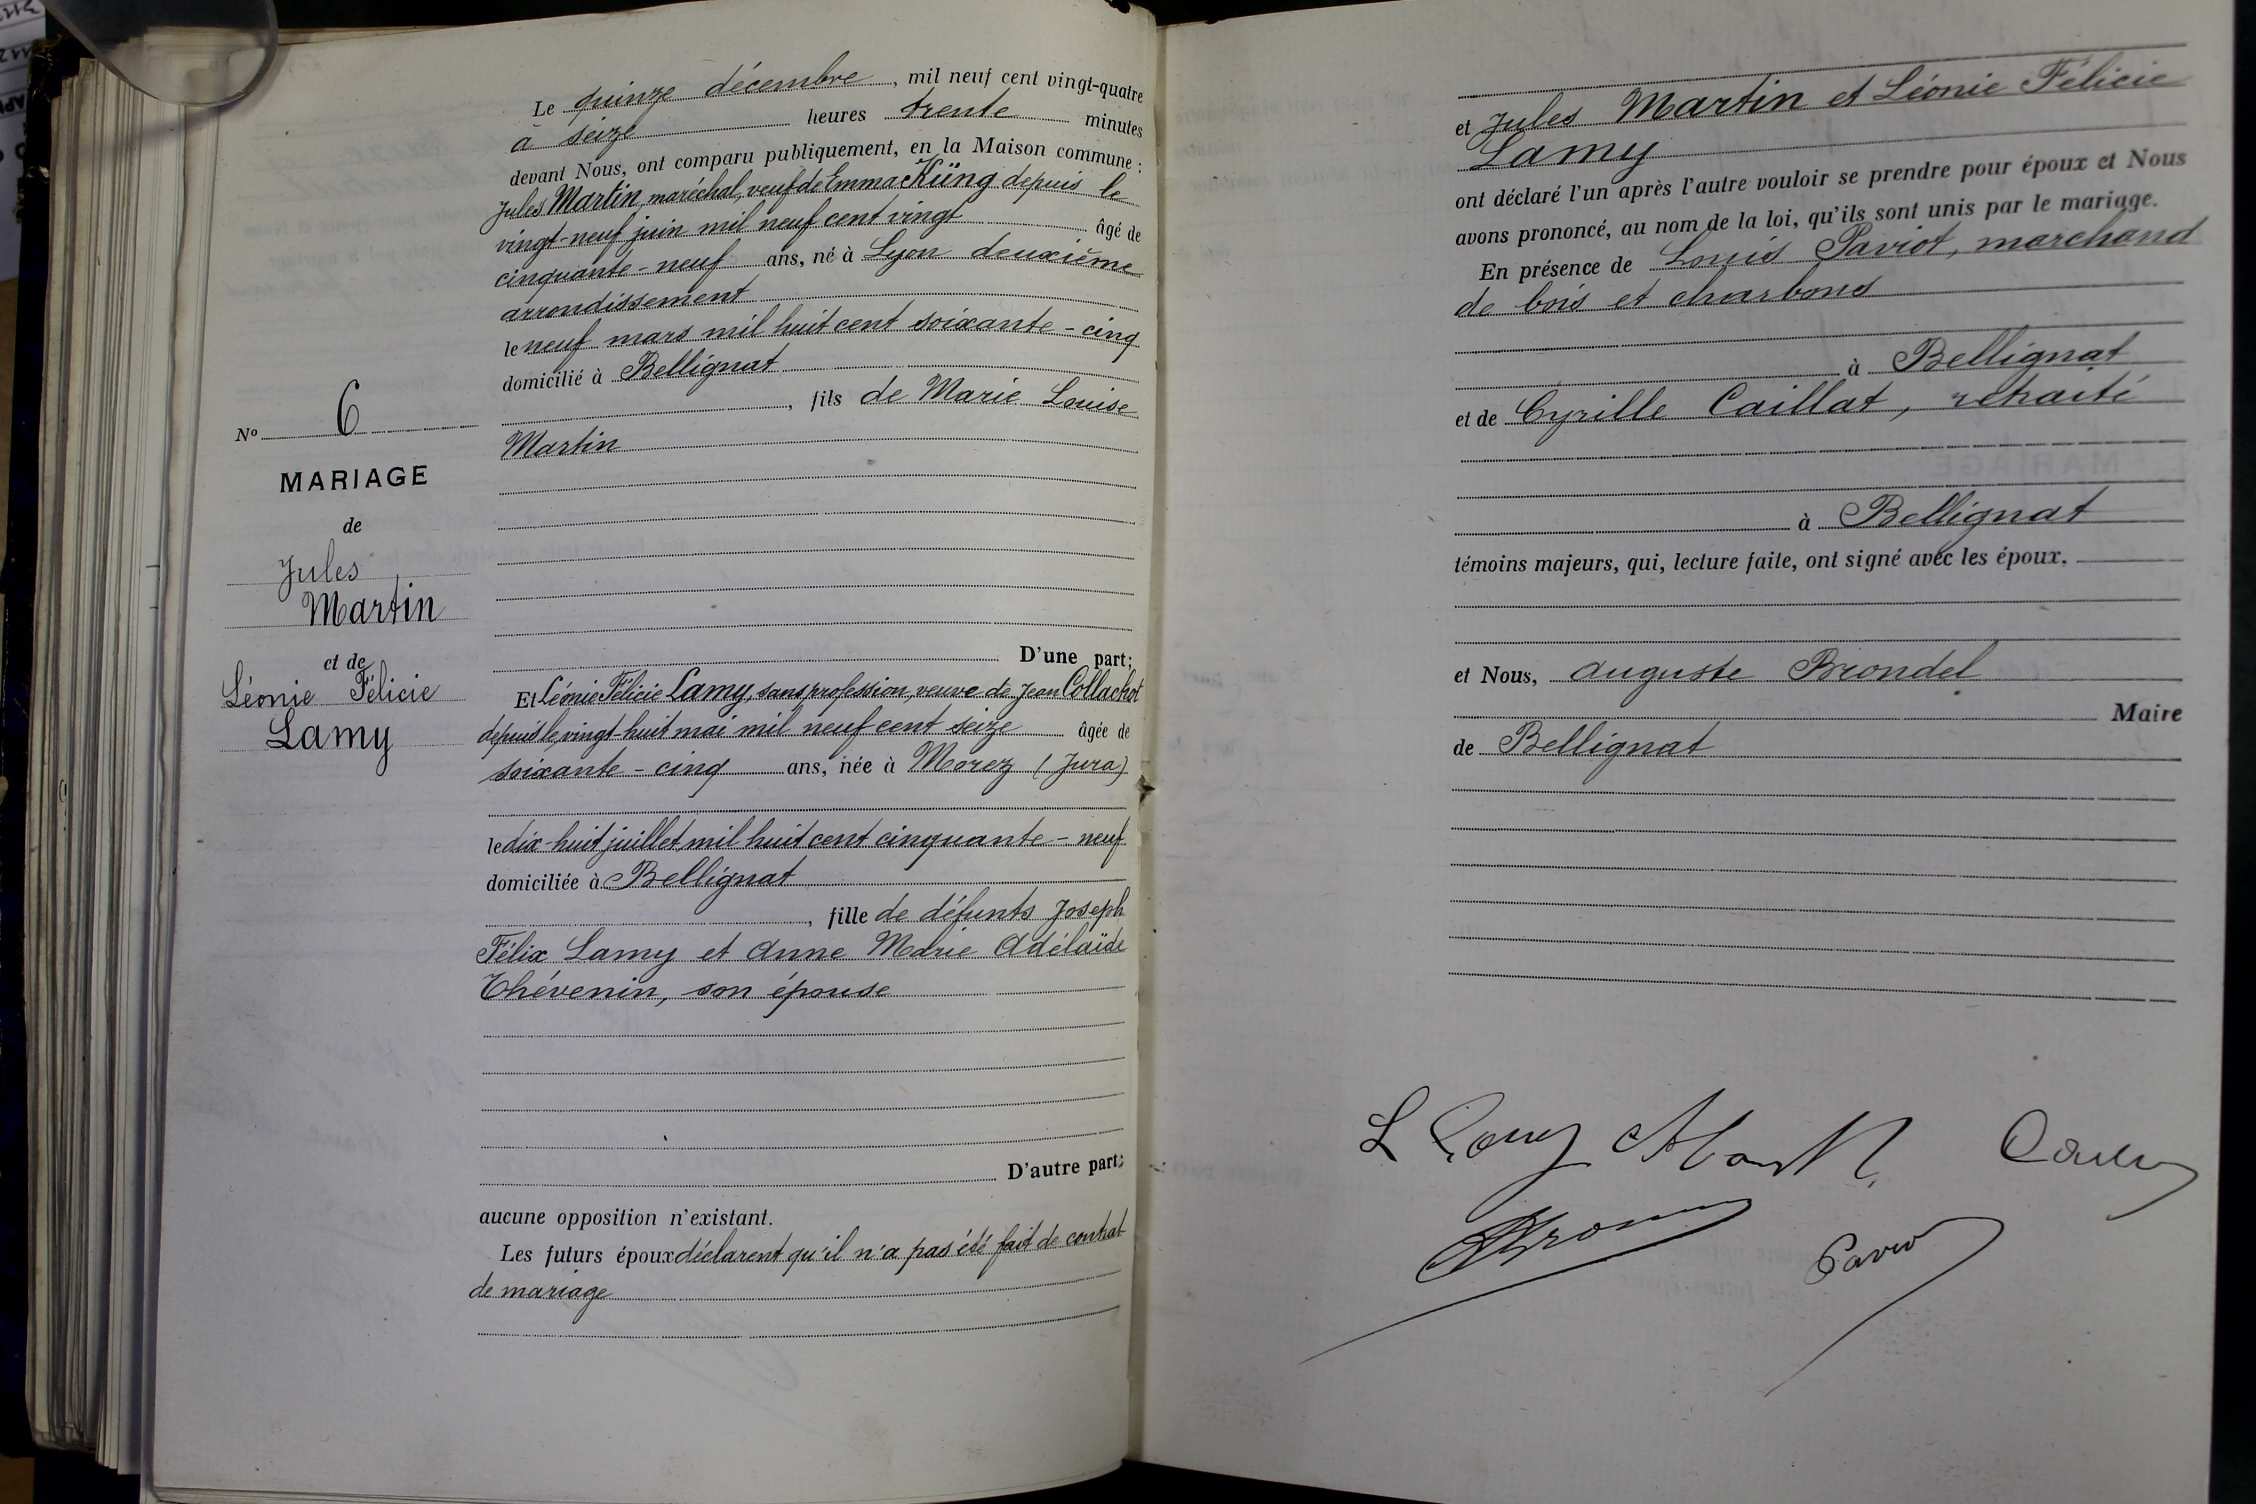 Le quinze décembre, mil neuf cent vingt-quatre
à seize heures trente minutes
devant Nous, ont comparu publiquement, en la Maison commune :
Jules Martin, maréchal, veuf de Emma Küng depuis le
vingt-neuf juin mil neuf cent vingt âgé de
cinquante-neuf ans, né à Lyon deuxième
arrondissement
le neuf mars mil huit cent soixante-cinq
domicilié à Bellignat
, fils de Marie Louise
Martin
D'une part;
Et Léonie Félicie Lamy, sans profession, veuve de Jean Collachot
depuis le vingt-huit mai mil neuf cent seize âgée de
soixante-cinq ans, née à Morez (Jura)
le dix-huit juillet mil huit cent cinquante-neuf
domiciliée à Bellignat
, fille de défunts Joseph
Félix Lamy et Anne Marie Adélaïde
Thévenin, son épouse
D'autre part;
aucune opposition n'existant.
Les futurs époux déclarent qu'il n'a pas été fait de contrat
de mariage
No 6
MARIAGE
de
Jules
Martin
et de
Léonie Félicie
Lamy
et Jules Martin et Léonie Félicie
Lamy
ont déclaré l'un après l'autre vouloir se prendre pour époux et Nous
avons prononcé, au nom de la loi, qu'ils sont unis par le mariage.
En présence de Louis Paviot, marchand
de bois et charbons
à Bellignat
et de Cyrille Caillat, retraité
à Bellignat
témoins majeurs, qui, lecture faite, ont signé avec les époux.
et Nous, Auguste Brondel
Maire
de Bellignat
L Lamy